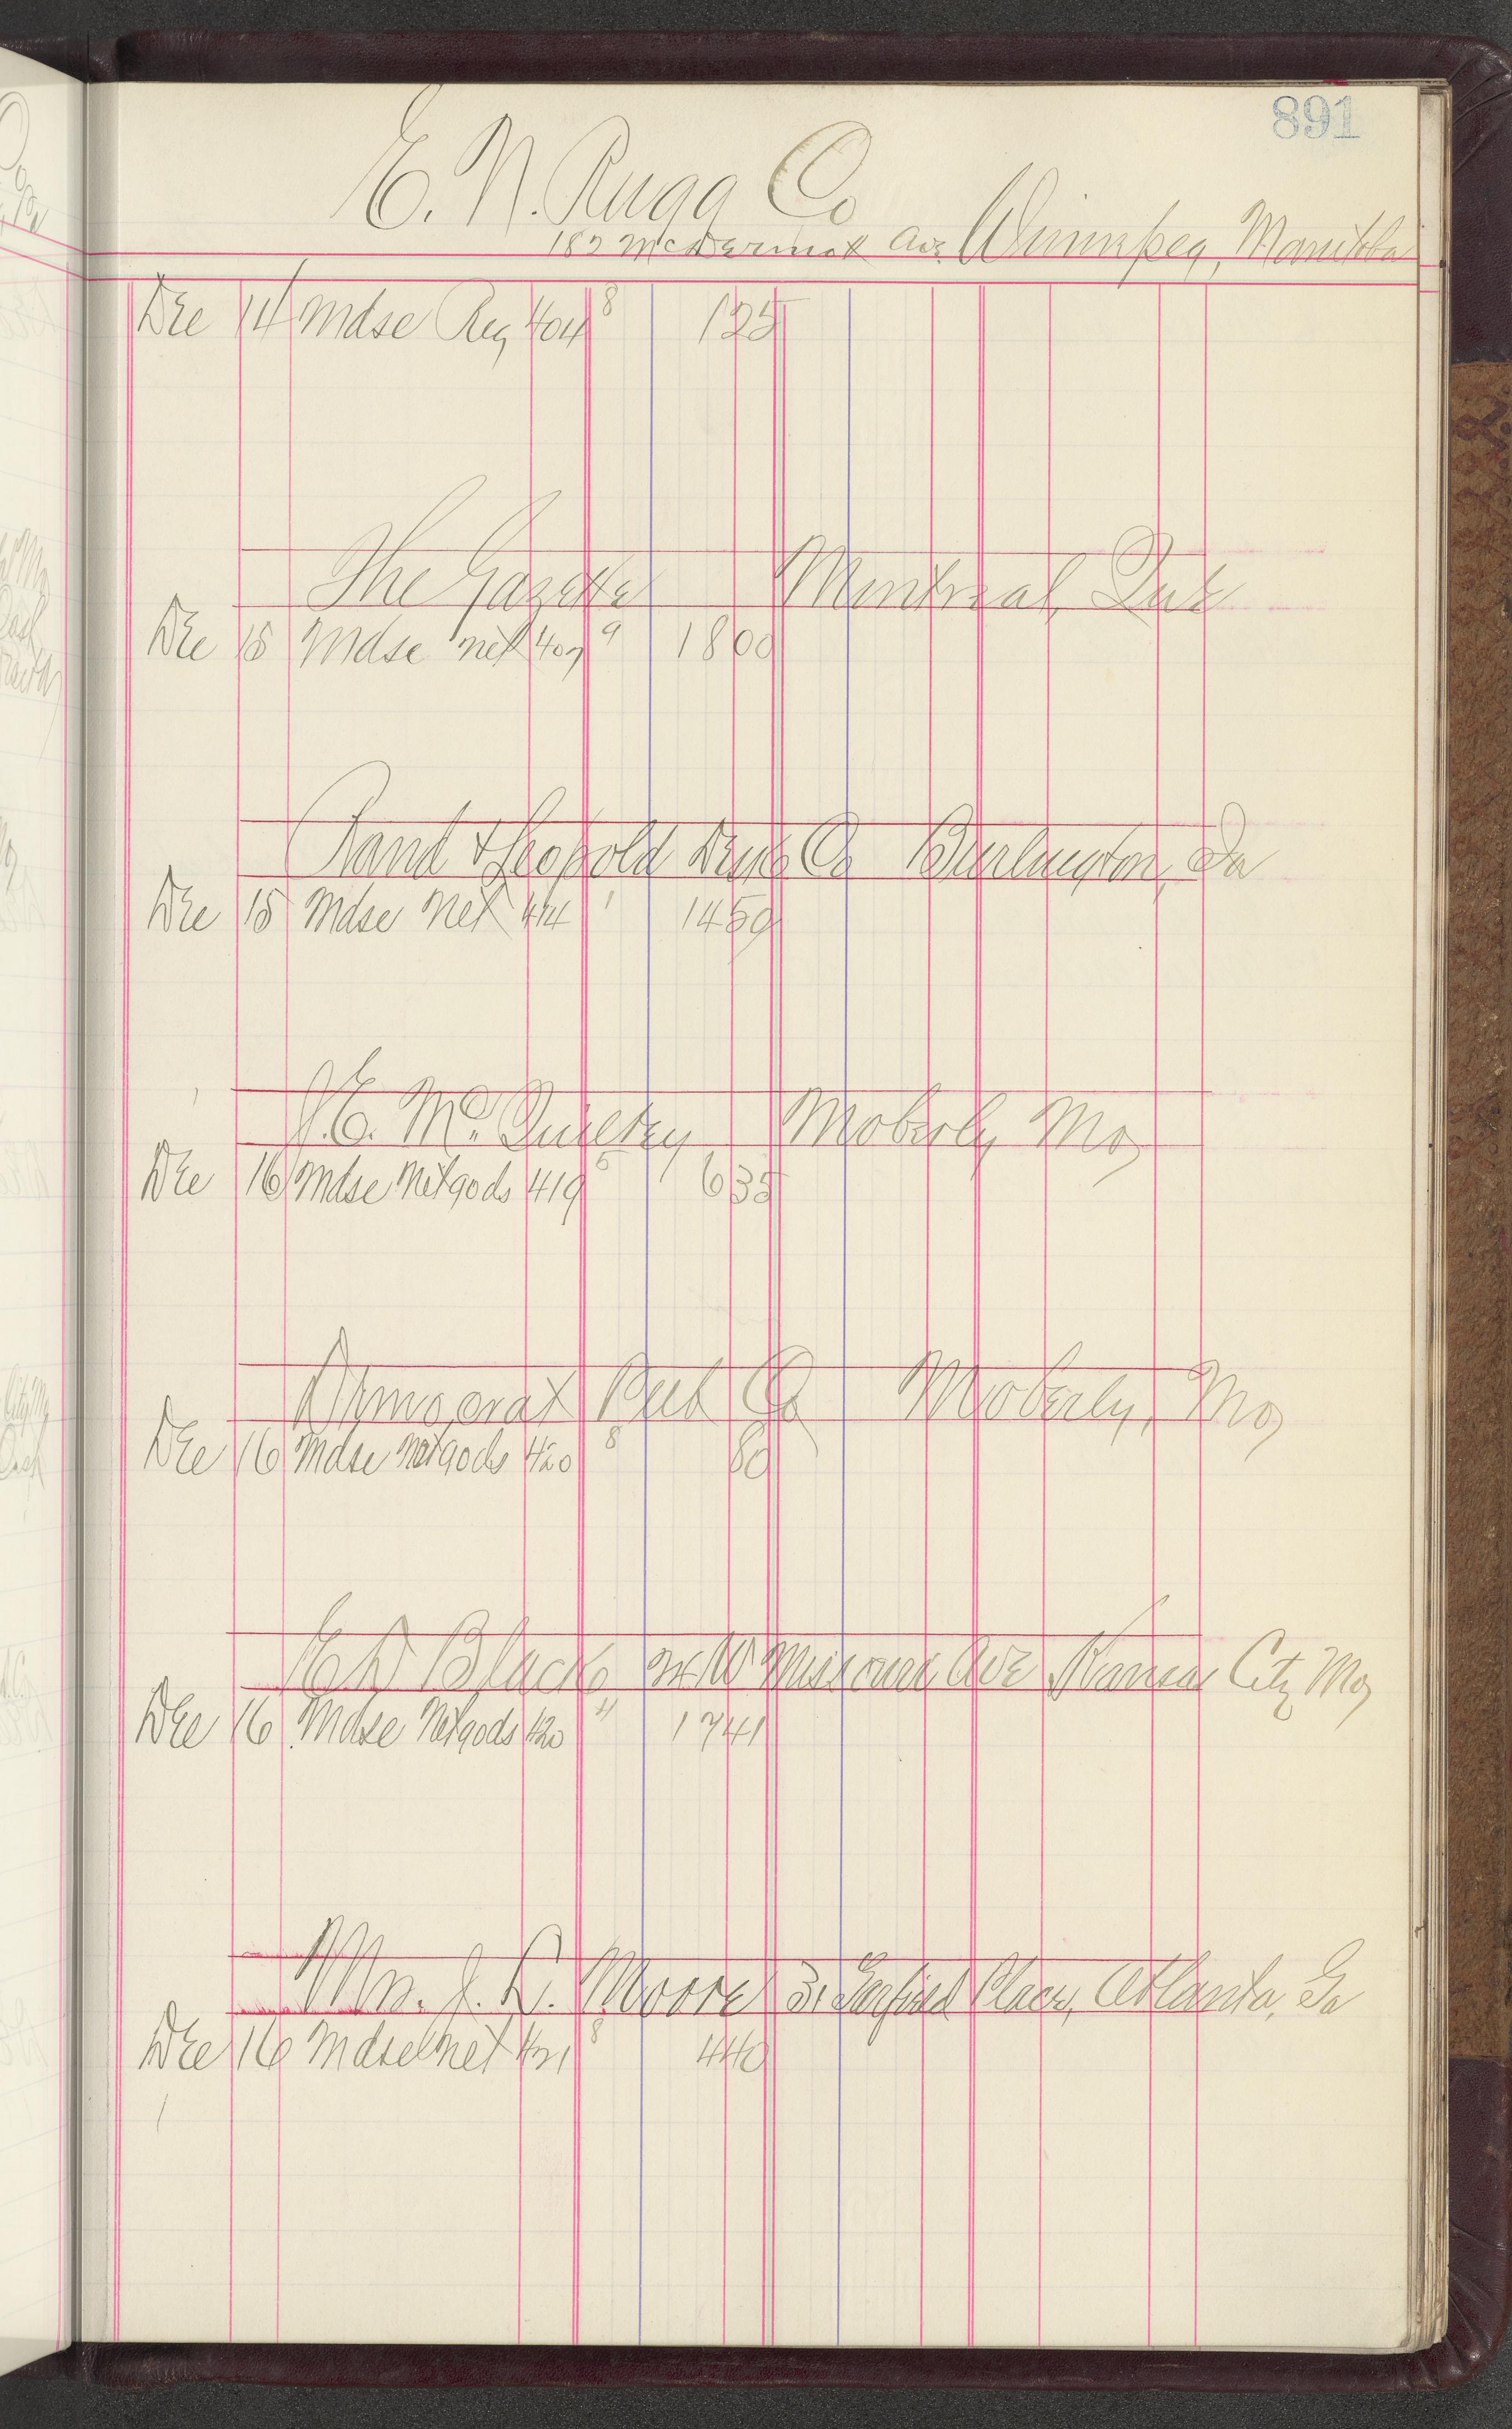 891
E. N. Rugg Co
182 McDermot Ave Winnipeg, Manitoba
Dec 14 Mdse Reg 404 8 125
The Gazette Montreal, Que
Dec 15 Mdse net 407 9 1800
Rand & Leopold Desk Co Burlington, Ia
Dec 15 Mdse Net 414 1 1459
J. E. McQuitty Moberly Mo
Dec 16 Mdse Net gods 419 5 635
Democrat Pub Co Moberly, Mo
Dec 16 Mdse Net gods 420 8 80
E D Black W Missouri Ave Kansas City Mo
Dec 16 Mdse Net gods 420 4 1741
Mrs. J. D. Moore 31 Garfield Place, Atlanta, Ga
Dec 16 Mdse net 421 8 440